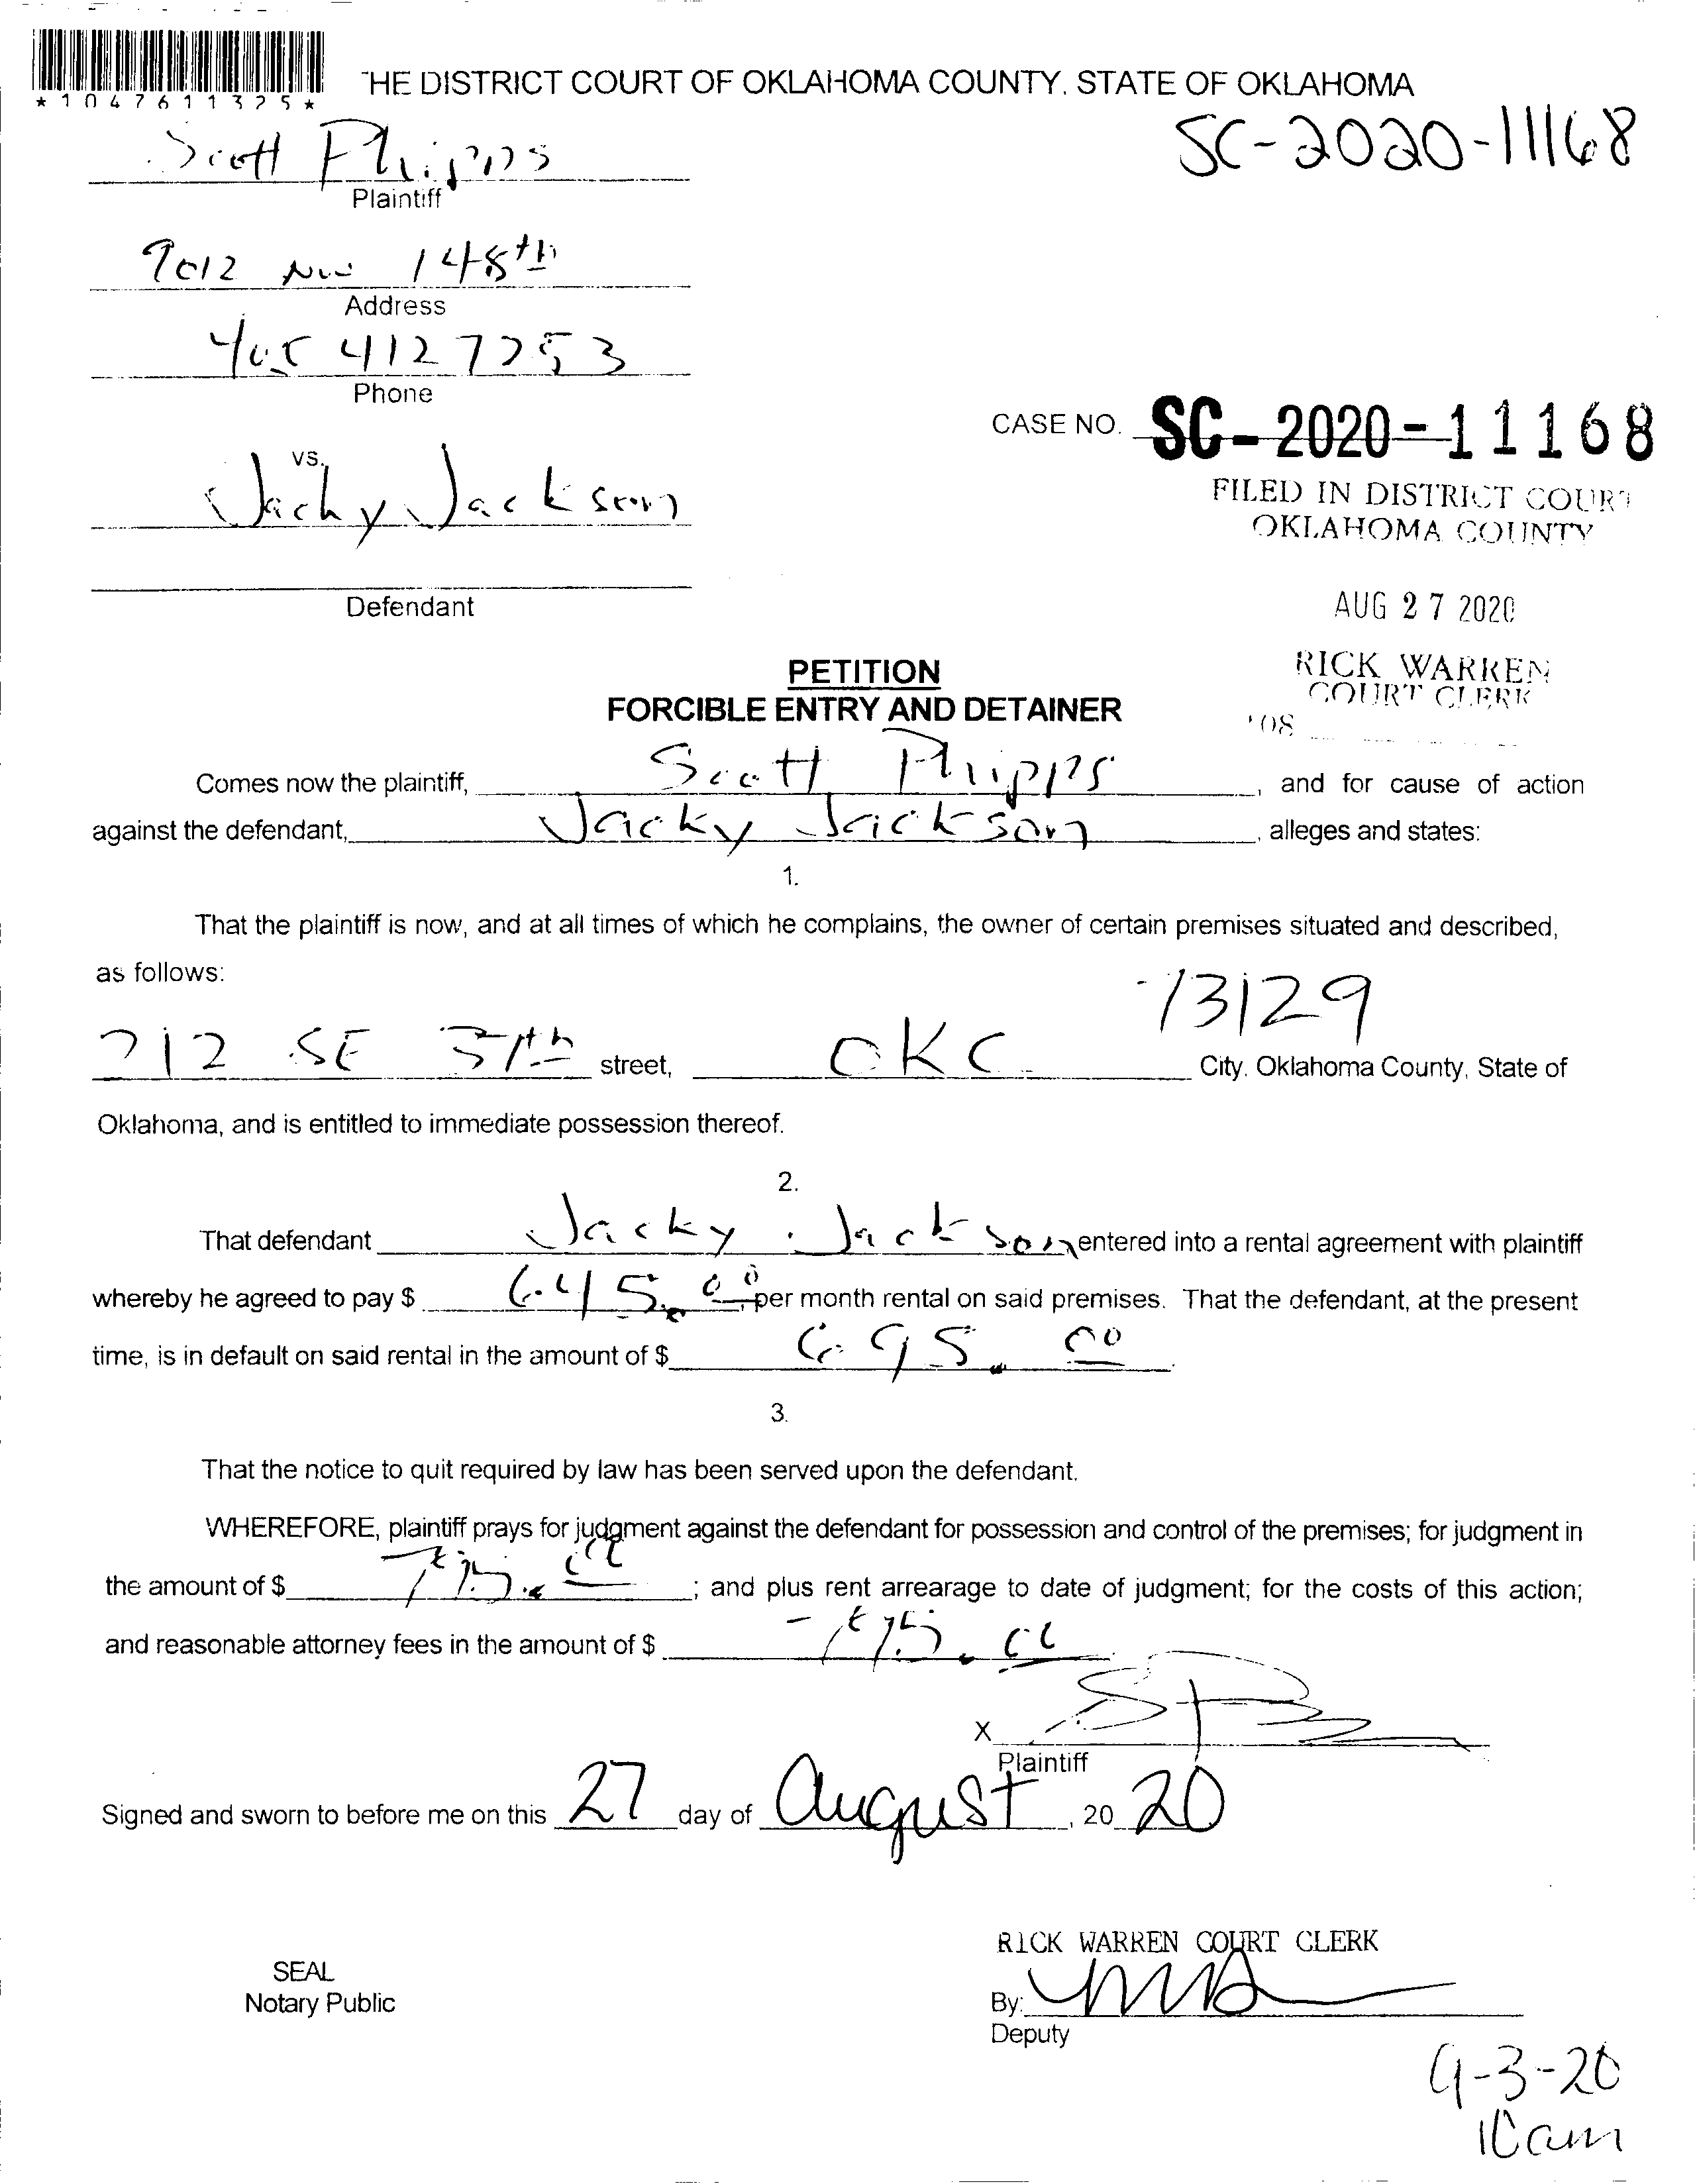 *1047611325*
THE DISTRICT COURT OF OKLAHOMA COUNTY, STATE OF OKLAHOMA
SC-2020-11168
Scott Phipps
Plaintiff
9012 NW 148th
Address
405 412 7253
Phone
CASE NO. SC-2020-11168
vs.
Jacky Jackson
FILED IN DISTRICT COURT
OKLAHOMA COUNTY
Defendant
AUG 27 2020
PETITION
RICK WARREN
COURT CLERK
FORCIBLE ENTRY AND DETAINER
108
Comes now the plaintiff, Scott Phipps, and for cause of action
against the defendant, Jacky Jackson, alleges and states:
1.
That the plaintiff is now, and at all times of which he complains, the owner of certain premises situated and described,
as follows:
73129
212 SE 37th street, OKC City, Oklahoma County, State of
Oklahoma, and is entitled to immediate possession thereof.
2.
That defendant Jacky Jackson entered into a rental agreement with plaintiff
whereby he agreed to pay $ 645.00, per month rental on said premises. That the defendant, at the present
time, is in default on said rental in the amount of $ 695.00.
3.
That the notice to quit required by law has been served upon the defendant.
WHEREFORE, plaintiff prays for judgment against the defendant for possession and control of the premises; for judgment in
the amount of $ ; and plus rent arrearage to date of judgment; for the costs of this action;
and reasonable attorney fees in the amount of $
X
Plaintiff
Signed and sworn to before me on this 27 day of August, 20 20
RICK WARREN COURT CLERK
SEAL
Notary Public
By:
Deputy
9-3-20
10am